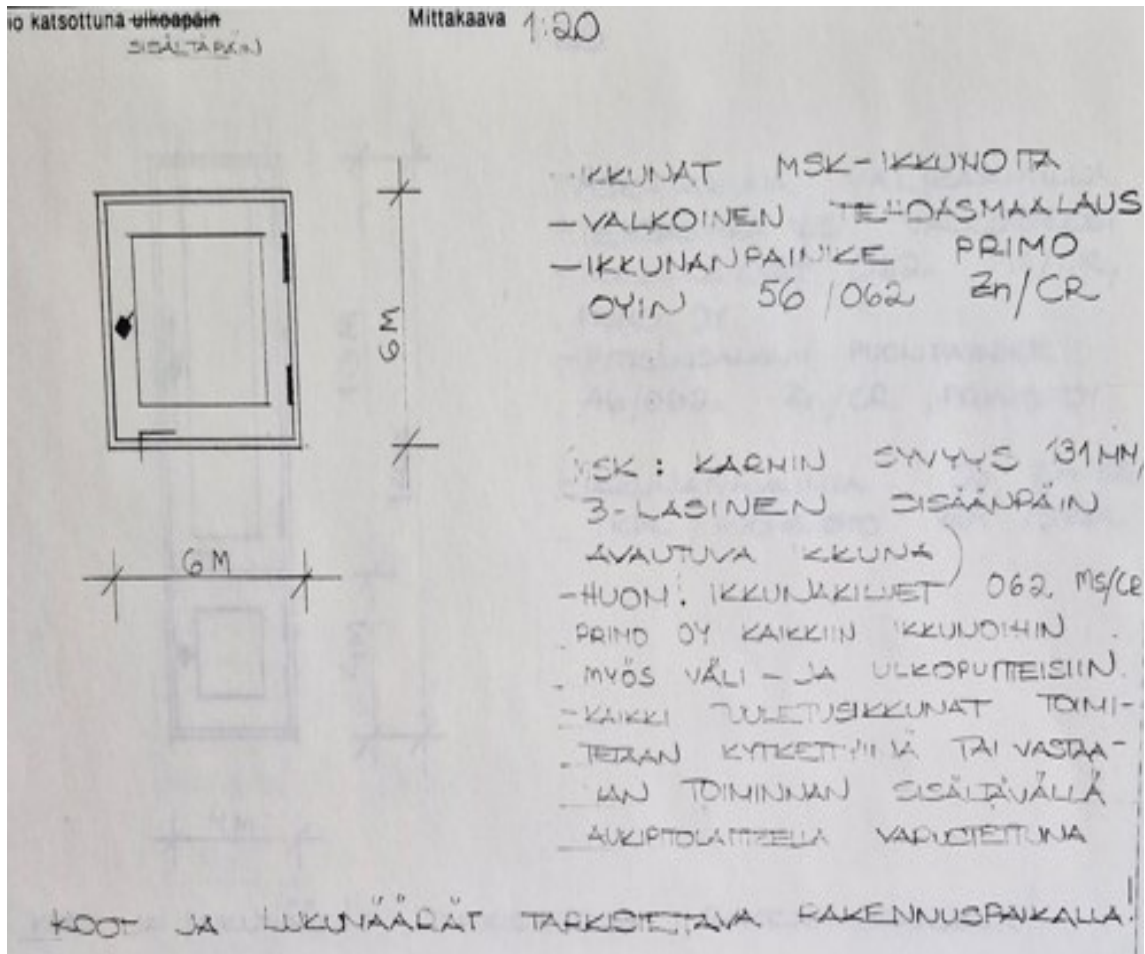 io katsottuna ulkoapäin
SISÄLTÄPÄIN
Mittakaava 1:20
-IKKUNAT MSK-IKKUNOITA
-VALKOINEN TEHDASMAALAUS
-IKKUNANPAINIKE PRIMO
OY:N 56/062 Zn/CR
6M
6M
MSK: KARMIN SYVYYS 131MM,
3-LASINEN SISÄÄNPÄIN
AVAUTUVA IKKUNA)
-HUOM! IKKUNAKILVET 062 MS/CR
PRIMO OY KAIKKIIN IKKUNOIHIN
MYÖS VÄLI- JA ULKOPUITTEISIIN.
-KAIKKI TUULETUSIKKUNAT TOIMI-
TETAAN KYTKETTYINÄ TAI VASTAA-
VAN TOIMINNAN SISÄLTÄVÄLLÄ
AUKIPITOLAITTEELLA VARUSTETTUNA
KOOT JA LUKUMÄÄRÄT TARKISTETTAVA RAKENNUSPAIKALLA!